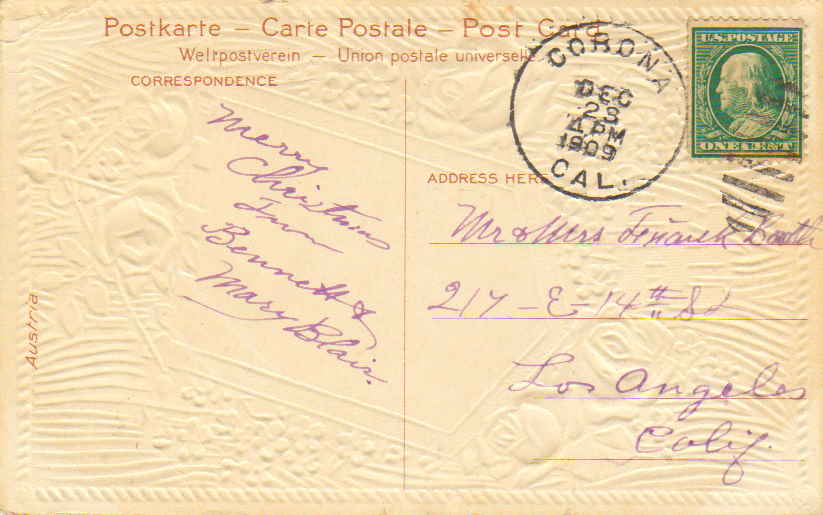 Postkarte – Carte Postale – Post Card
Weltpostverein – Union postale universelle
CORRESPONDENCE
CORONA
DEC
23
4 PM
1909
CAL.
U.S. POSTAGE
ONE CENT
ADDRESS HERE
Merry
Christmas
From
Bennett &
Mary Blair.
Mr & Mrs Booth
217 – E – 14th St
Los Angeles
Calif.
Austria